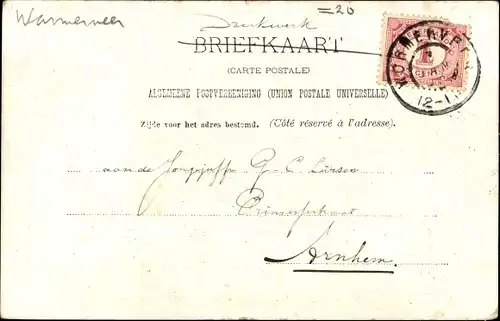 Wormerveer
=20
Drukwerk
BRIEFKAART
(CARTE POSTALE)
ALGEMEENE POSTVEREENIGING (UNION POSTALE UNIVERSELLE)
Zijde voor het adres bestemd. (Côté réservé à l'adresse).
WORMERVEER
12-1
1
aan de Jongejuffr. G. C. Lürsen
Prinsessestraat
Arnhem.